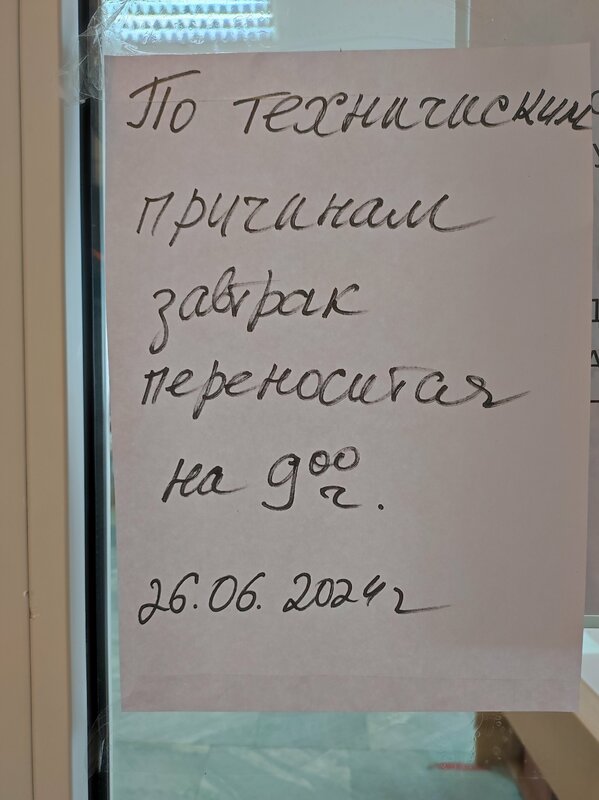 По техничиским
причинам
завтрак
переносится
на 9 00 ч.
26.06.2024 г